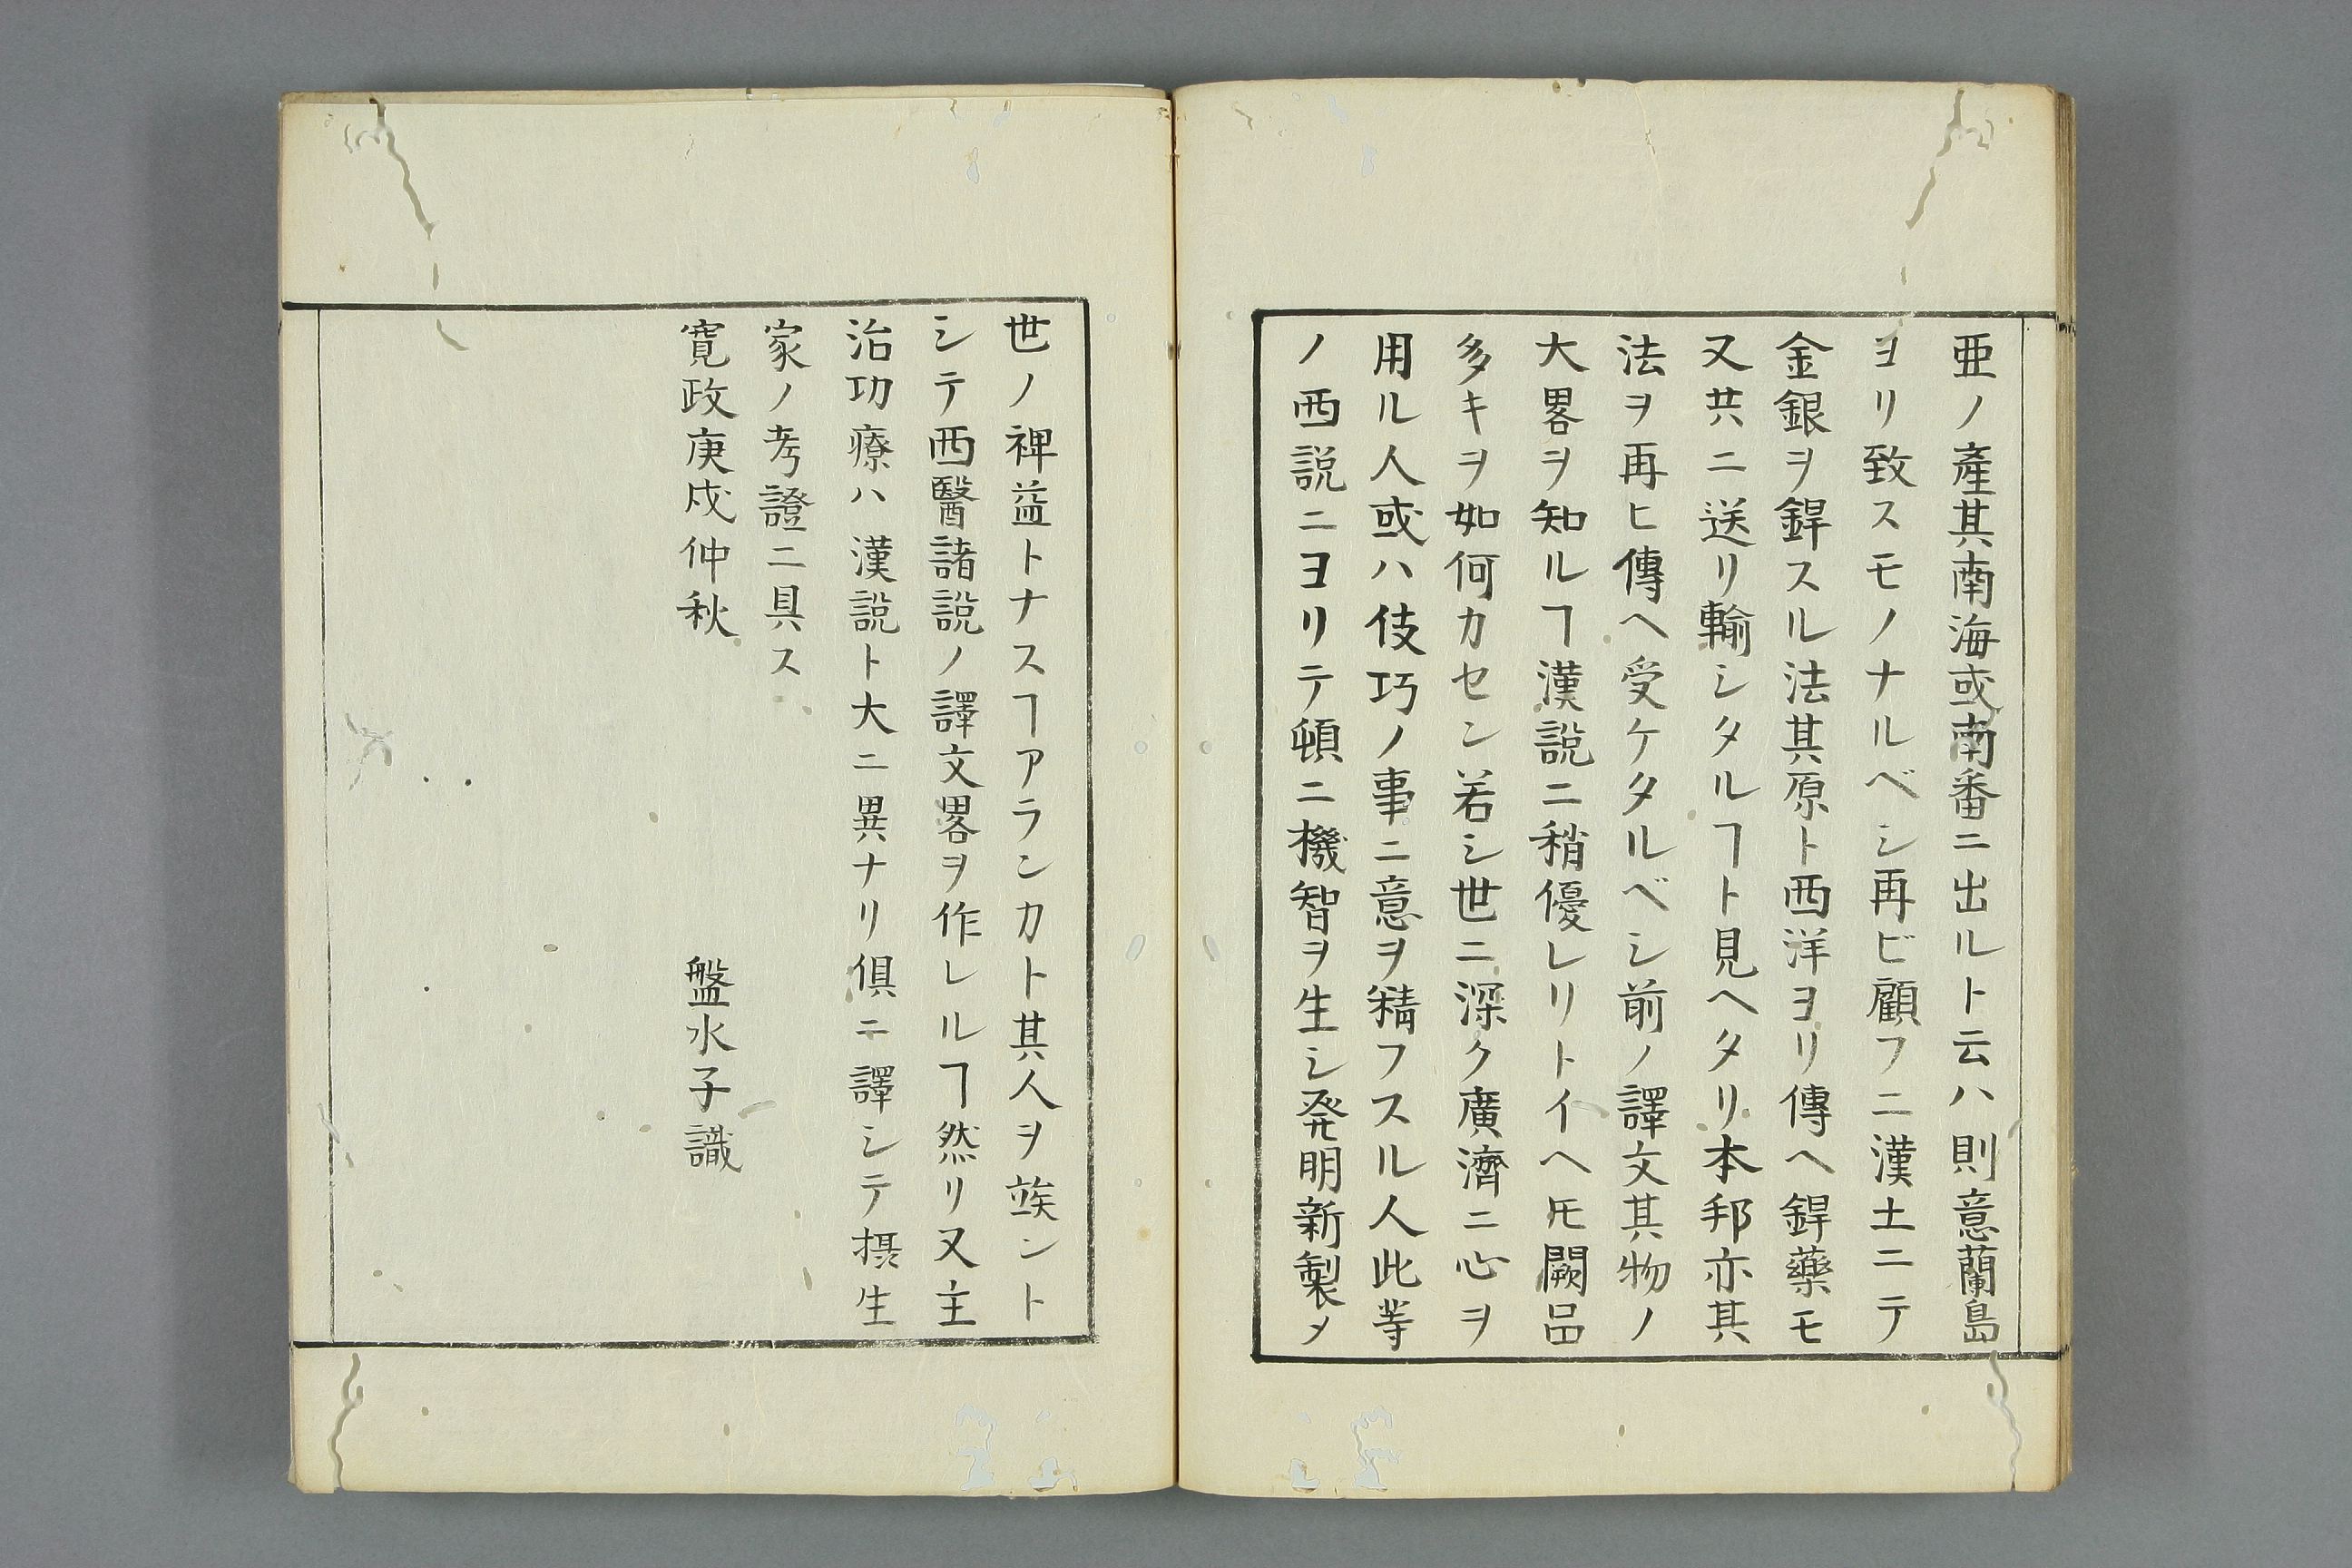 亜ノ產其南海或南番ニ出ルト云ハ則意蘭島
ヨリ致スモノナルベシ再ビ顧フニ漢土ニテ
金銀ヲ銲スル法其原ト西洋ヨリ傳ヘ銲藥モ
又共ニ送リ輸シタルヿト見ヘタリ本邦亦其
法ヲ再ヒ傳ヘ受ケタルベシ前ノ譯文其物ノ
大畧ヲ知ルヿ漢説ニ稍優レリトイヘ𪜈闕㽞
多キヲ如何カセン若シ世ニ深ク廣濟ニ心ヲ
用ル人或ハ伎巧ノ事ニ意ヲ精フスル人此等
ノ西説ニヨリテ頓ニ機智ヲ生シ発明新製メ
世ノ裨益トナスヿアランカト其人ヲ竢ント
シテ西醫諸説ノ譯文畧ヲ作レルヿ然リ又主
治功療ハ漢説ト大ニ異ナリ俱ニ譯シテ摂生
家ノ考證ニ具ス
寛政庚戌仲秋
盤水子識